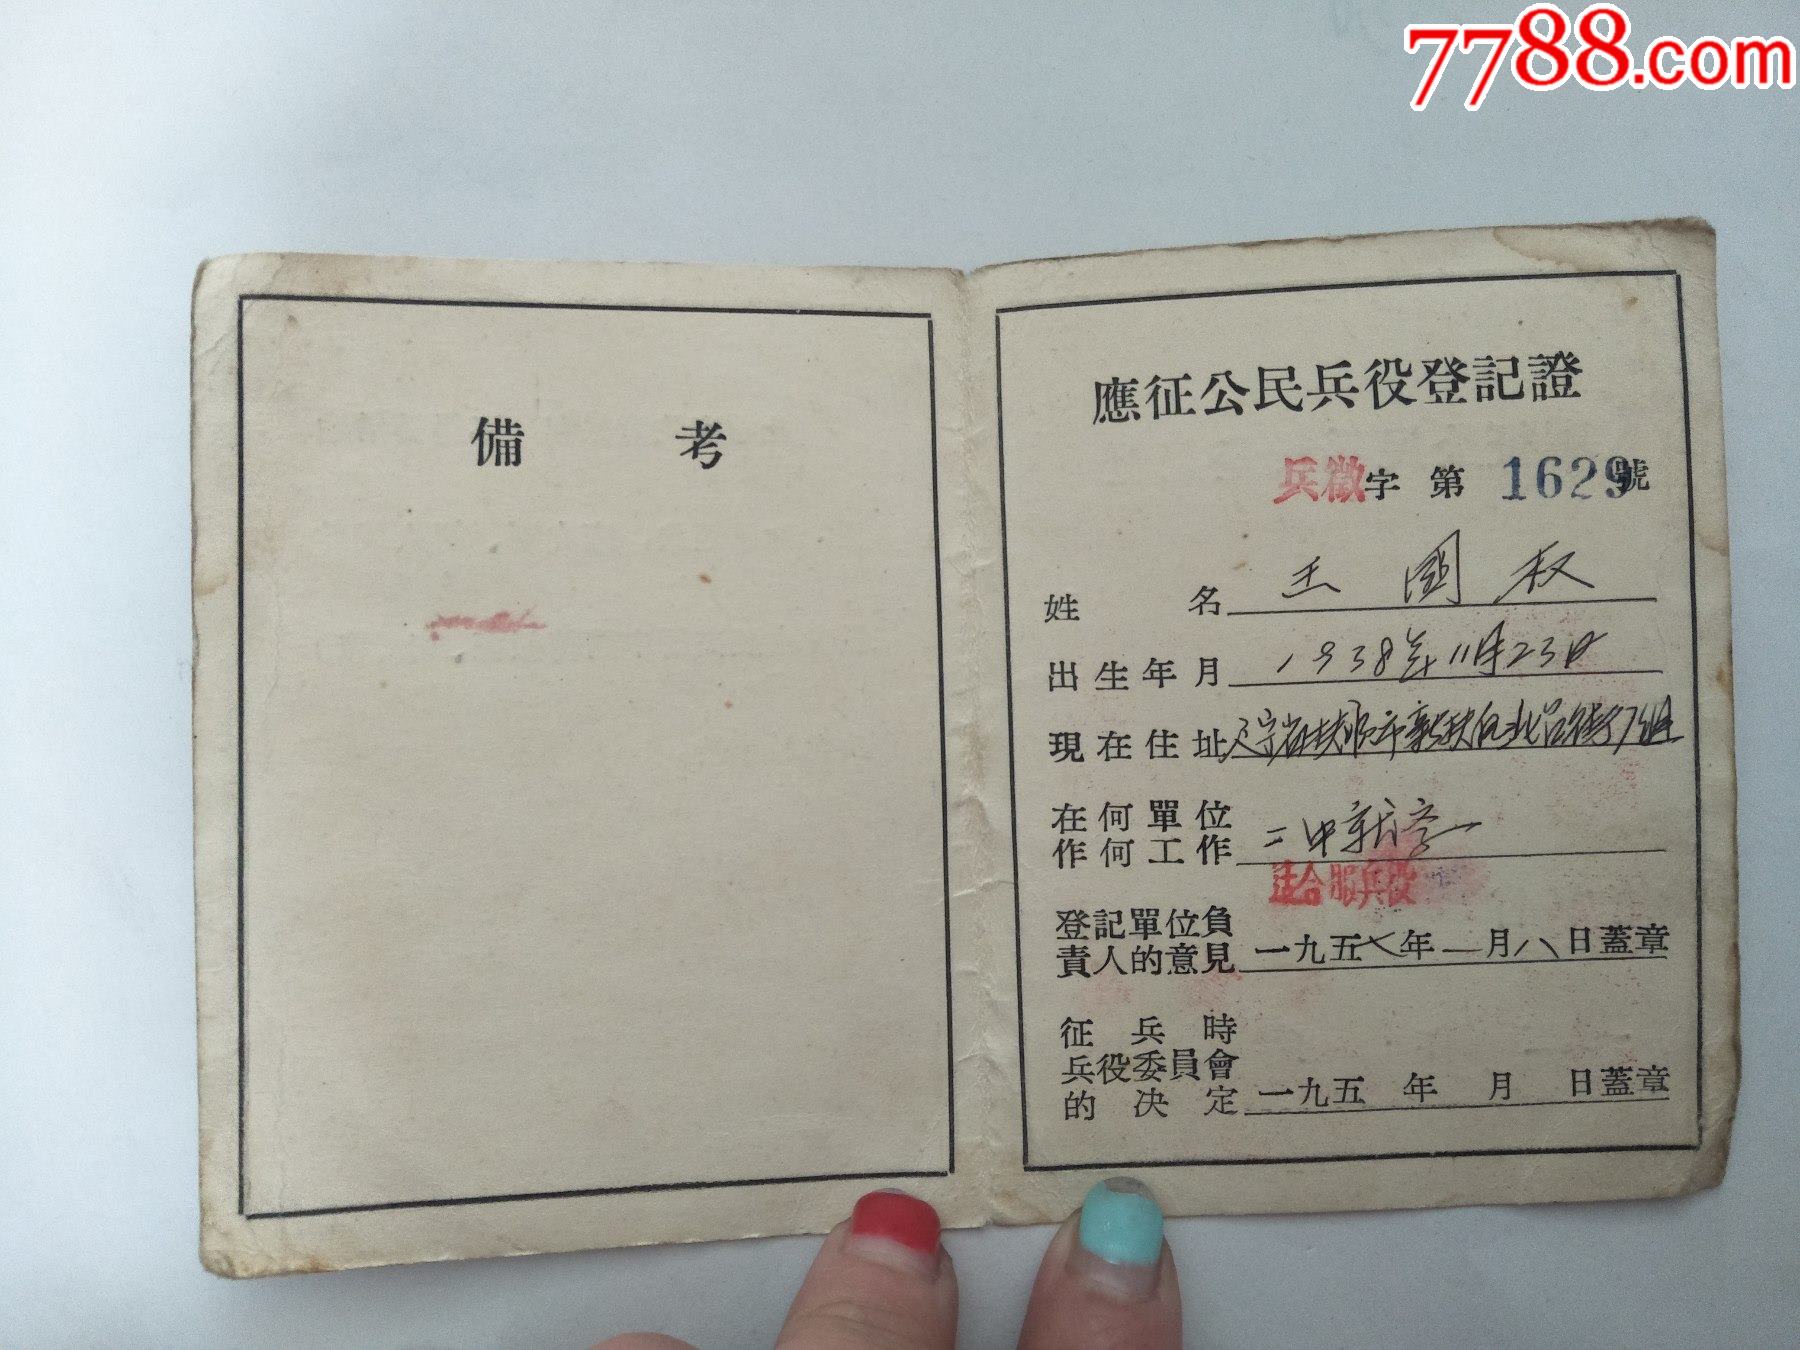 7788.com
備考
應征公民兵役登記證
兵徵字第1629號
姓名 王國权
出生年月 1938年11月23日
現在住址 辽宁省抚順市新抚区北 街 7組
在何單位
作何工作 二中
适合服兵役
登記單位負
責人的意見 一九五七年一月八日蓋章
征兵時
兵役委員會
的决定 一九五 年 月 日蓋章